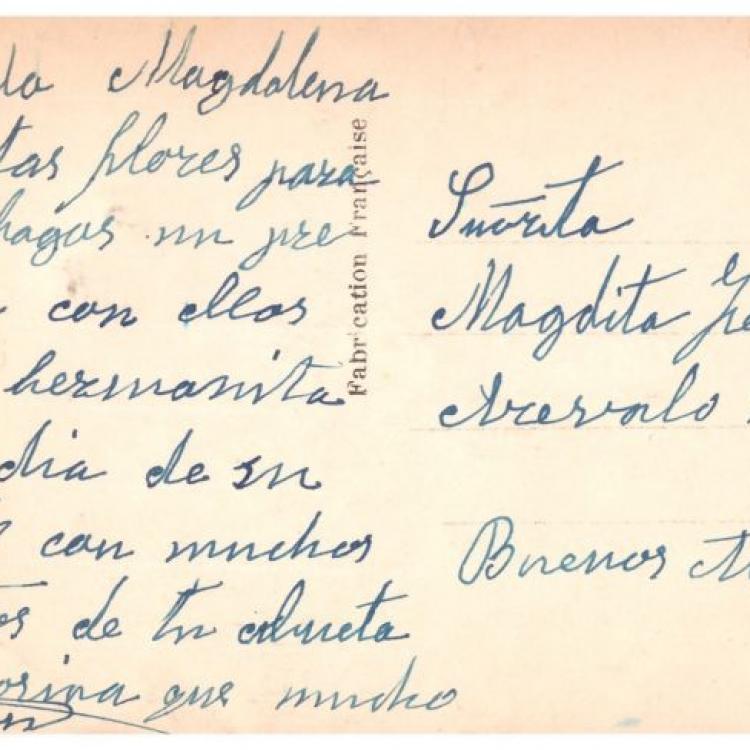 da Magdalena
tas flores para
hagas un pre
con ellas
hermanita
dia de su
con muchos
es de tu abueta
orina que mucho
Fabrication Française
Suñorita
Magdita
Arevalo
Buenos A